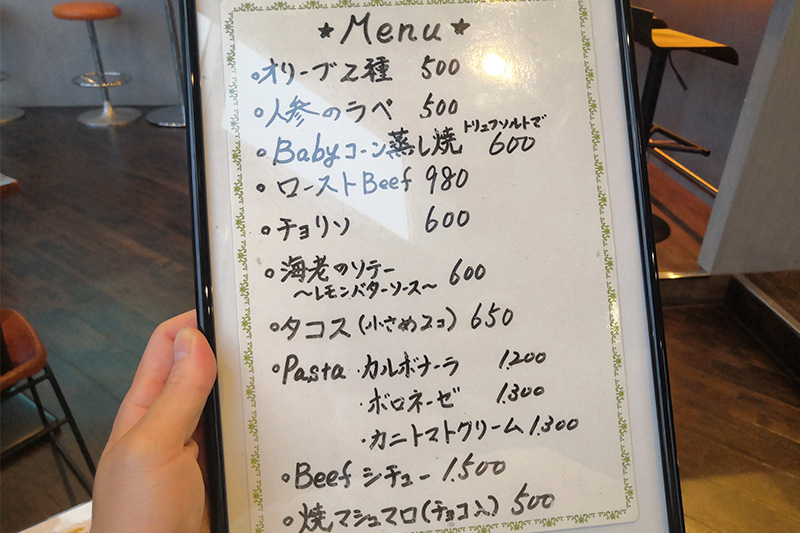 ★Menu★
・オリーブ2種 500
・人参のラペ 500
・Babyコーン蒸し焼 トリュフソルトで 600
・ローストBeef 980
・チョリソ 600
・海老のソテー 600
〜レモンバターソース〜
・タコス(小さめ2コ) 650
・Pasta ・カルボナーラ 1.200
・ボロネーゼ 1.300
・カニトマトクリーム 1.300
・Beefシチュー 1.500
・焼マシュマロ(チョコ入) 500